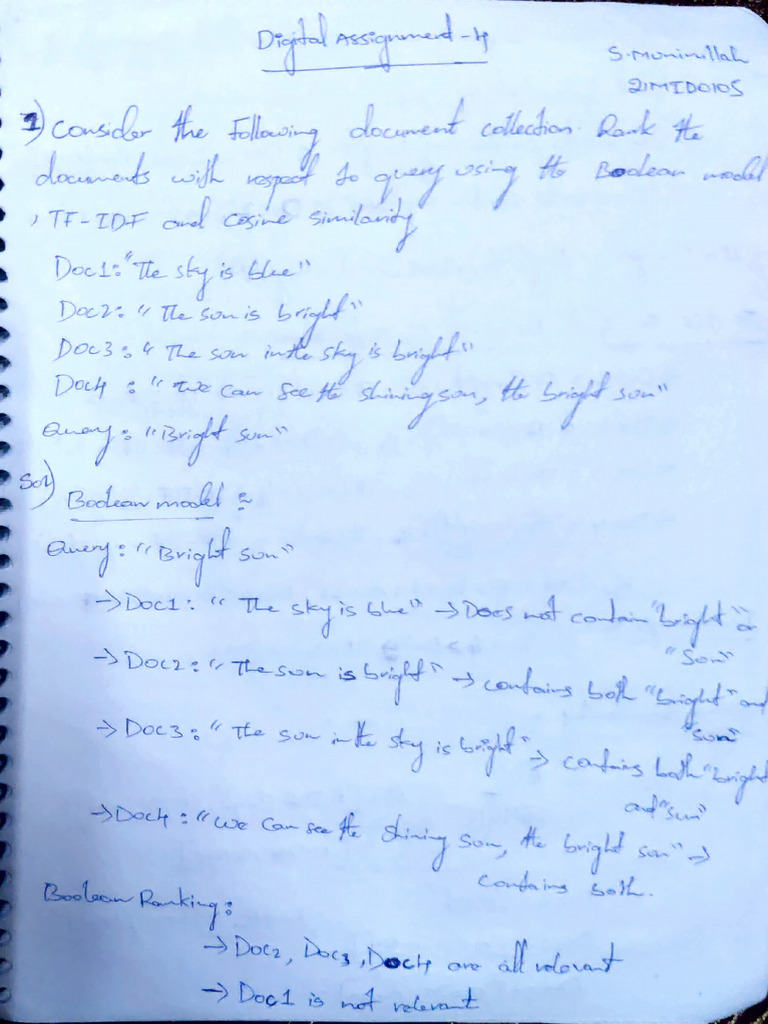 Digital Assignment - 4
S. Munirullah
21MID0105
1) Consider the Following document collection. Rank the
documents with respect to query using the Boolean model
, TF-IDF and cosine similarity
Doc1: "The sky is blue"
Doc2: "The sun is bright"
Doc3: "The sun in the sky is bright"
Doc4 : "we can see the shining sun, the bright sun"
Query: "Bright sun"
Sol)
Boolean model :
Query: "Bright sun"
→ Doc1: "The sky is blue" → Does not contain "bright" or
"Sun"
→ Doc2: "The sun is bright" → contains both "bright" and
"sun"
→ Doc3: "The sun in the sky is bright" → contains both "bright
and "sun"
→ Doc4: "we can see the shining sun, the bright sun" →
contains both.
Boolean Ranking:
→ Doc2, Doc3, Doc4 are all relevant
→ Doc1 is not relevant